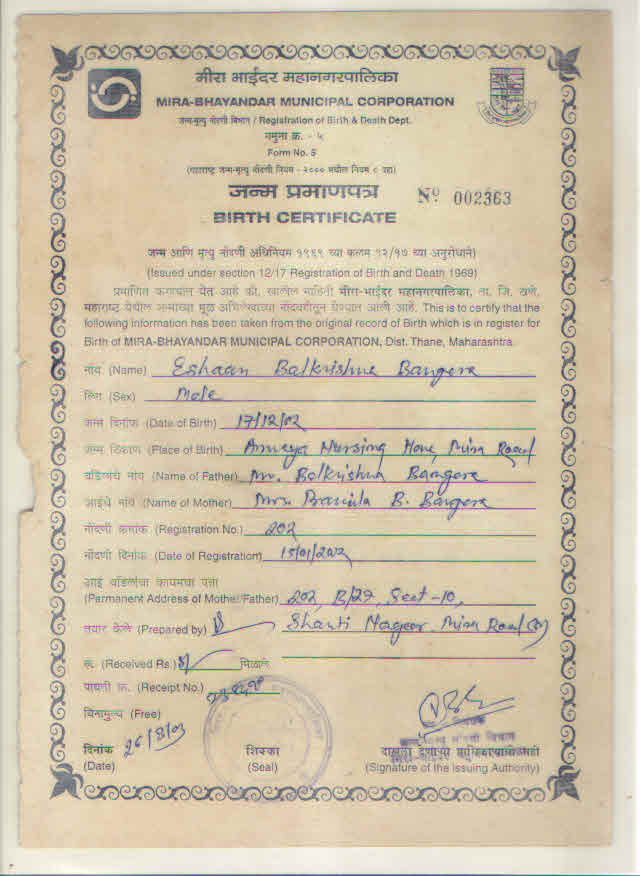 मीरा भाईंदर महानगरपालिका
MIRA-BHAYANDAR MUNICIPAL CORPORATION
जन्म-मृत्यु नोंदणी विभाग / Registration of Birth & Death Dept.
नमुना क्र. - ५
Form No. 5
(महाराष्ट्र जन्म-मृत्यु नोंदणी नियम - २००० मधील नियम ८ पहा)
जन्म प्रमाणपत्र Nº 002363
BIRTH CERTIFICATE
जन्म आणि मृत्यु नोंदणी अधिनियम १९६९ च्या कलम १२/१७ च्या अनुरोधाने)
(Issued under section 12/17 Registration of Birth and Death 1969)
प्रमाणित करण्यात येत आहे की, खालील माहिती मीरा-भाईंदर महानगरपालिका, ता. जि. ठाणे,
महाराष्ट्र येथील जन्माच्या मूळ अभिलेखाच्या नोंदवहीतून घेण्यात आली आहे. This is to certify that the
following information has been taken from the original record of Birth which is in register for
Birth of MIRA-BHAYANDAR MUNICIPAL CORPORATION, Dist. Thane, Maharashtra.
नांव (Name) Eshaan Balkrishna Bangera
लिंग (Sex) Male
जन्म दिनांक (Date of Birth) 17/12/02
जन्म ठिकाण (Place of Birth) Nursing Home, Mira Road
वडिलांचे नांव (Name of Father) Mr. Balkrishna Bangera
आईचे नांव (Name of Mother) Mrs. B. Bangera
नोंदणी क्रमांक (Registration No.) 202
नोंदणी दिनांक (Date of Registration) 15/01/
आई वडिलांचा कायमचा पत्ता
(Permanent Address of Mother/Father) 202, B/27, Sect-10,
तयार केले (Prepared by) Shanti Nagar, Mira Road (E)
रु. (Received Rs.) मिळाले
पावती क्र. (Receipt No.)
विनामुल्य (Free)
दिनांक 26/8/03
(Date)
शिक्का
(Seal)
(Signature of the Issuing Authority)